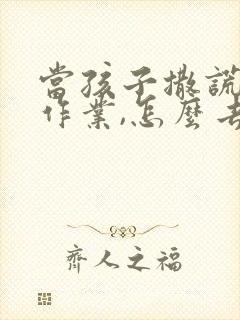 當孩子撒謊
作業,怎麼
齊人之福